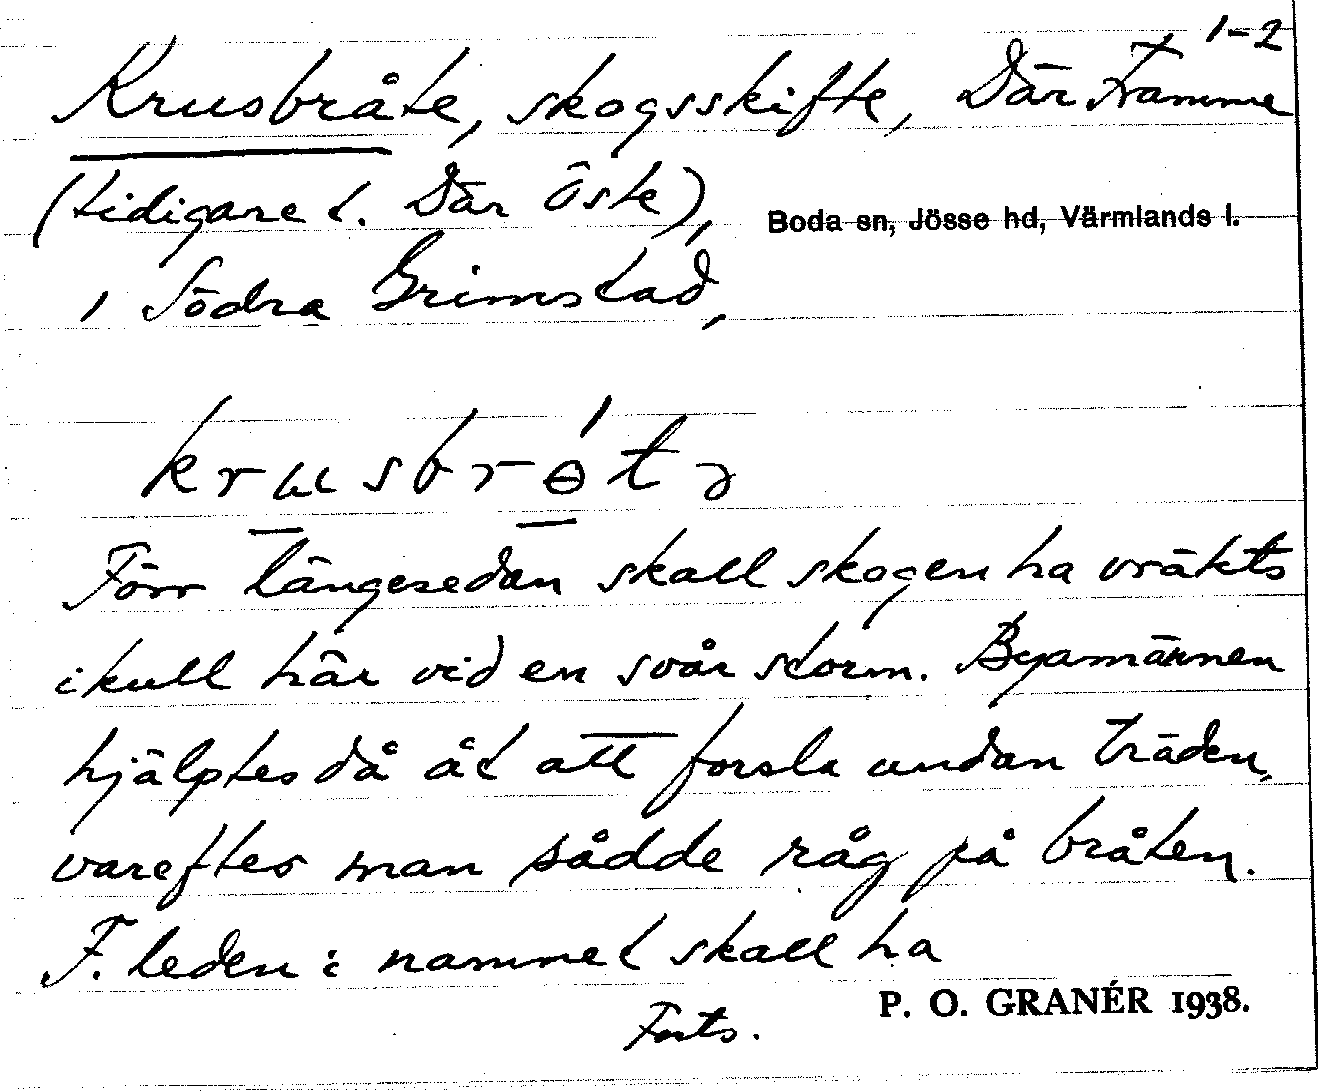 1-2
Krusbråte, skogsskifte, Där Framme
(tidigare t. Där Öste),
Boda sn, Jösse hd, Värmlands l.
i Södra Grimstad,
krusbrɵ́tə
Förr längesedan skall skogen ha vräkts
ikull här vid en svår storm. Byamännen
hjälptes då åt att forsla undan träden,
varefter man sådde råg på bråten.
F. leden i namnet skall ha
Forts.
P. O. GRANÉR 1938.